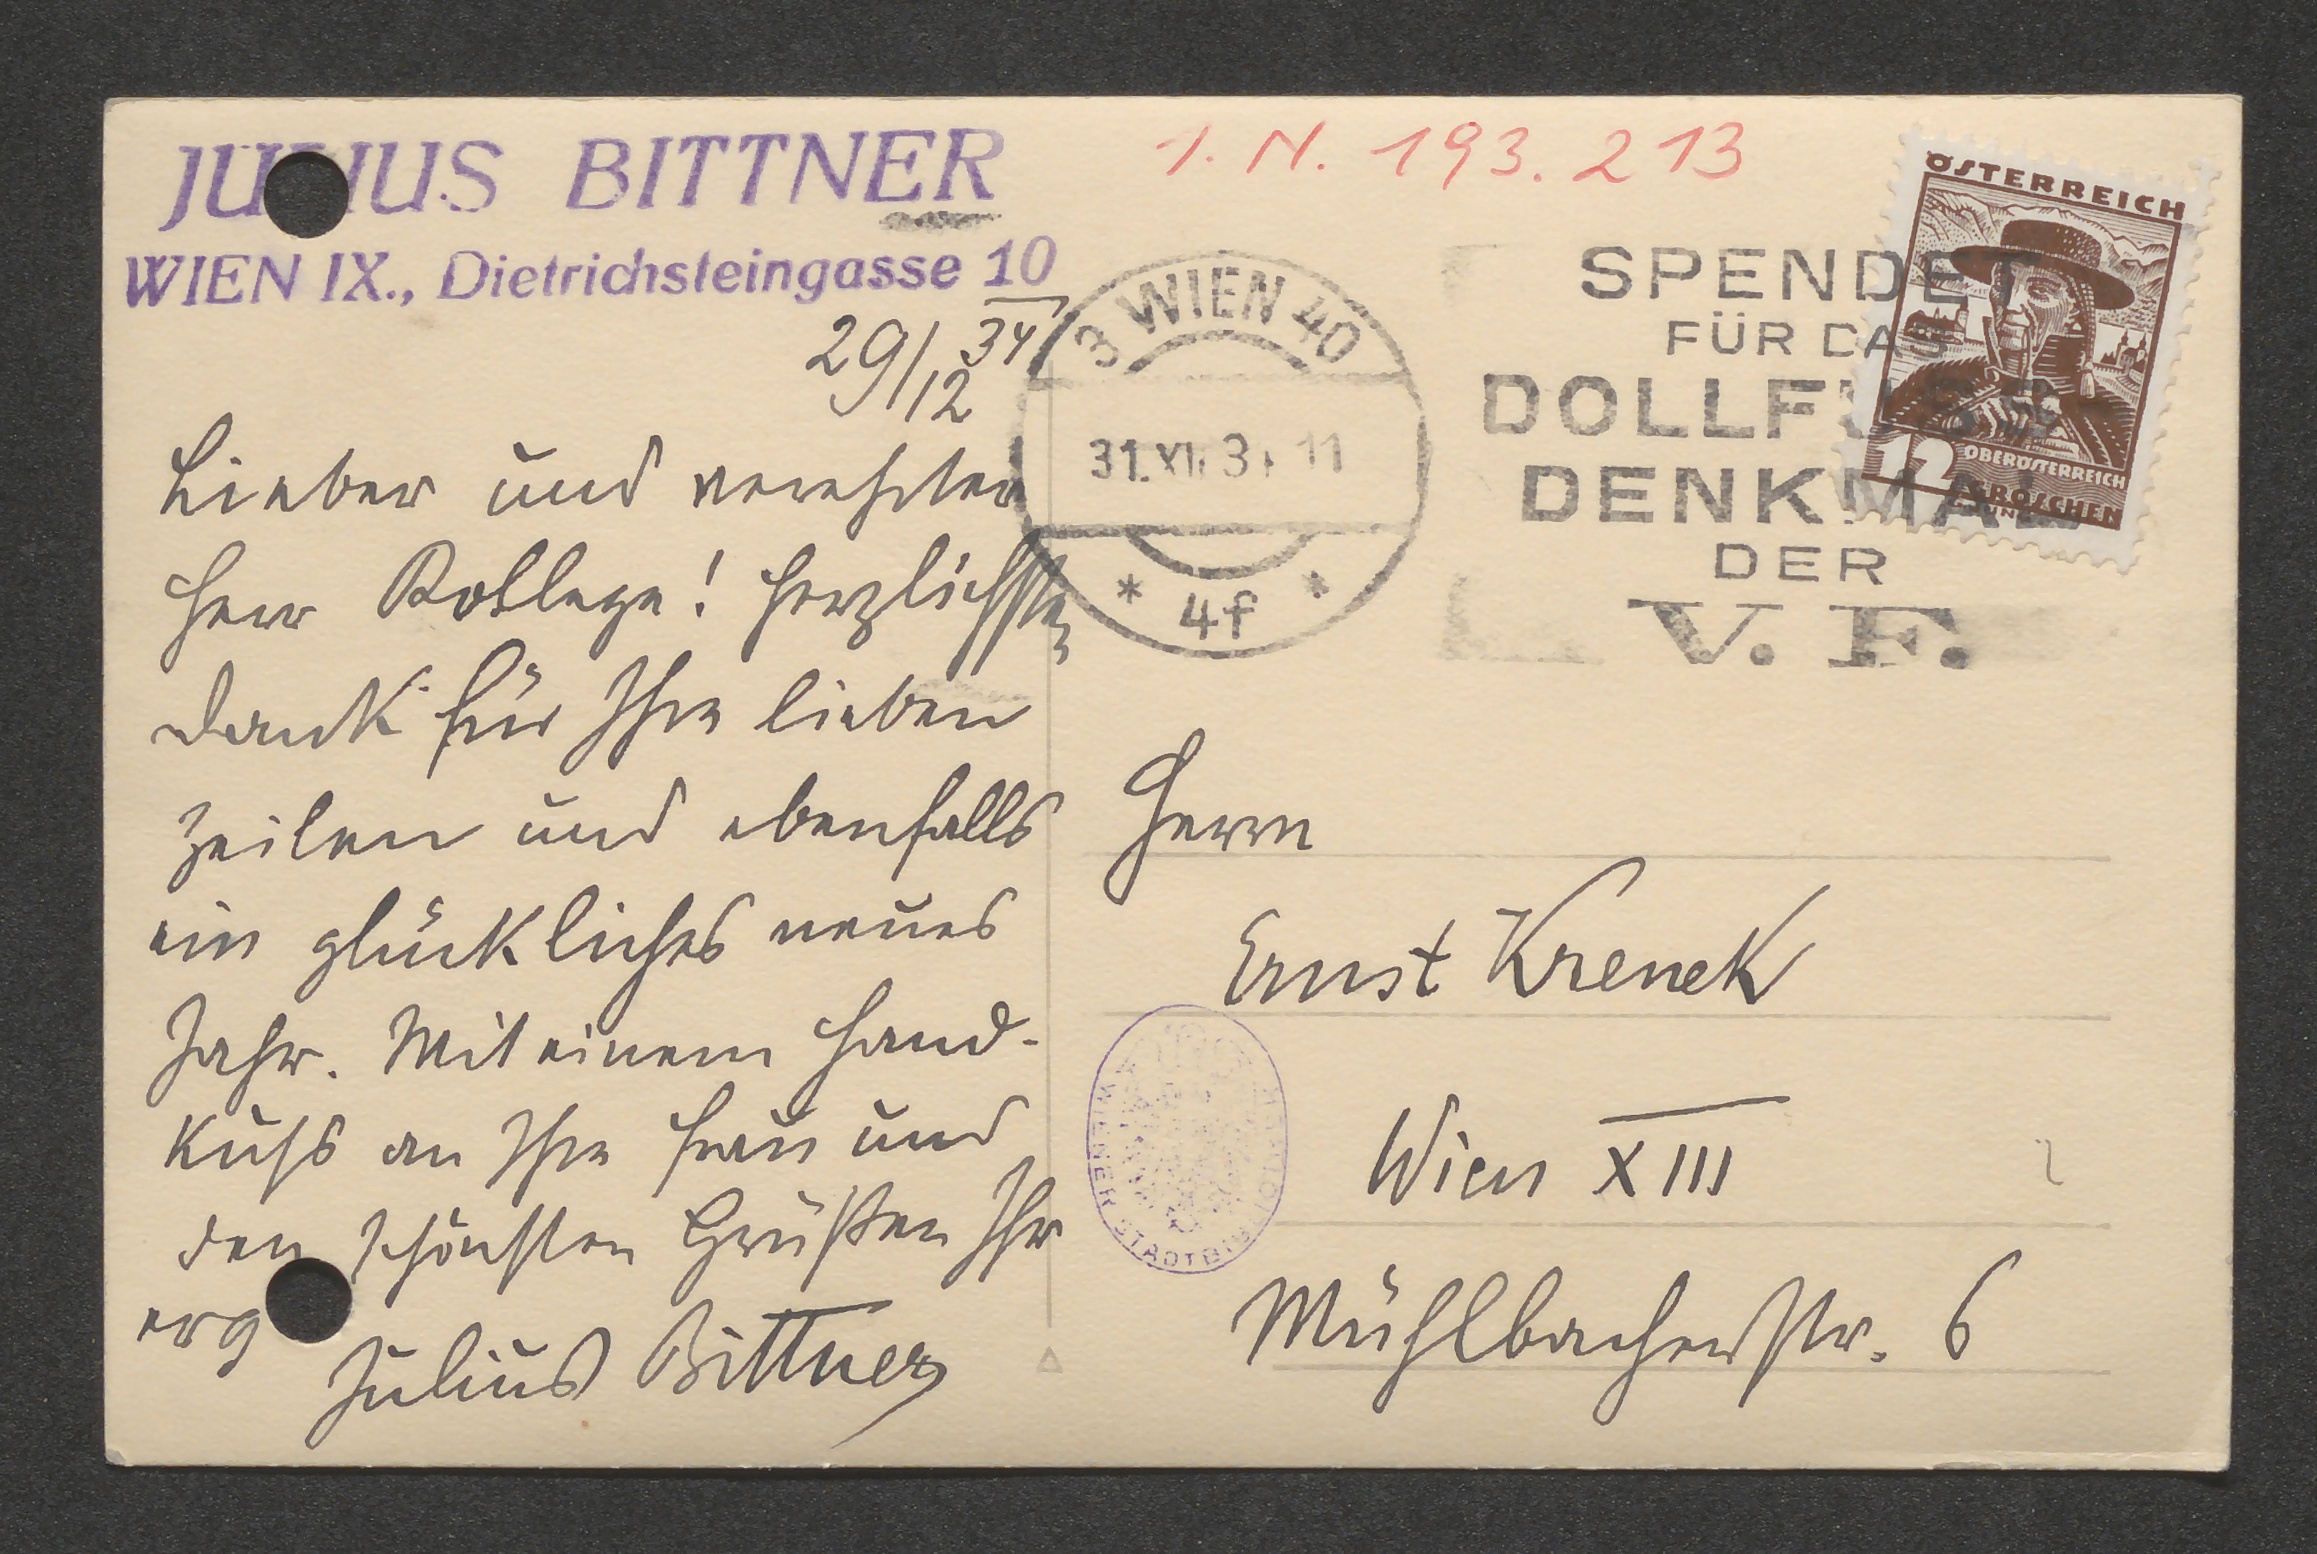 JULIUS BITTNER
WIEN IX., Dietrichsteingasse 10
29/12 34
Lieber und verehrter
Herr Kollege! Herzlichsten
Dank für Ihre lieben
Zeilen und ebenfalls
ein glückliches neues
Jahr. Mit einem Hand-
kuss an Ihre Frau und
den schönsten Grüßen Ihr
erg
Julius Bittner
I.N. 193.213
3 WIEN 40
31.XII.3 11
* 4f *
SPENDET
FÜR DAS
DOLLFUSS
DENKMAL
DER
V. F.
ÖSTERREICH
12 OBERÖSTERREICH
GROSCHEN
Herrn
Ernst Krenek
Wien XIII
Mühlbacherstr. 6
WIENER STADTBIBLIOTHEK